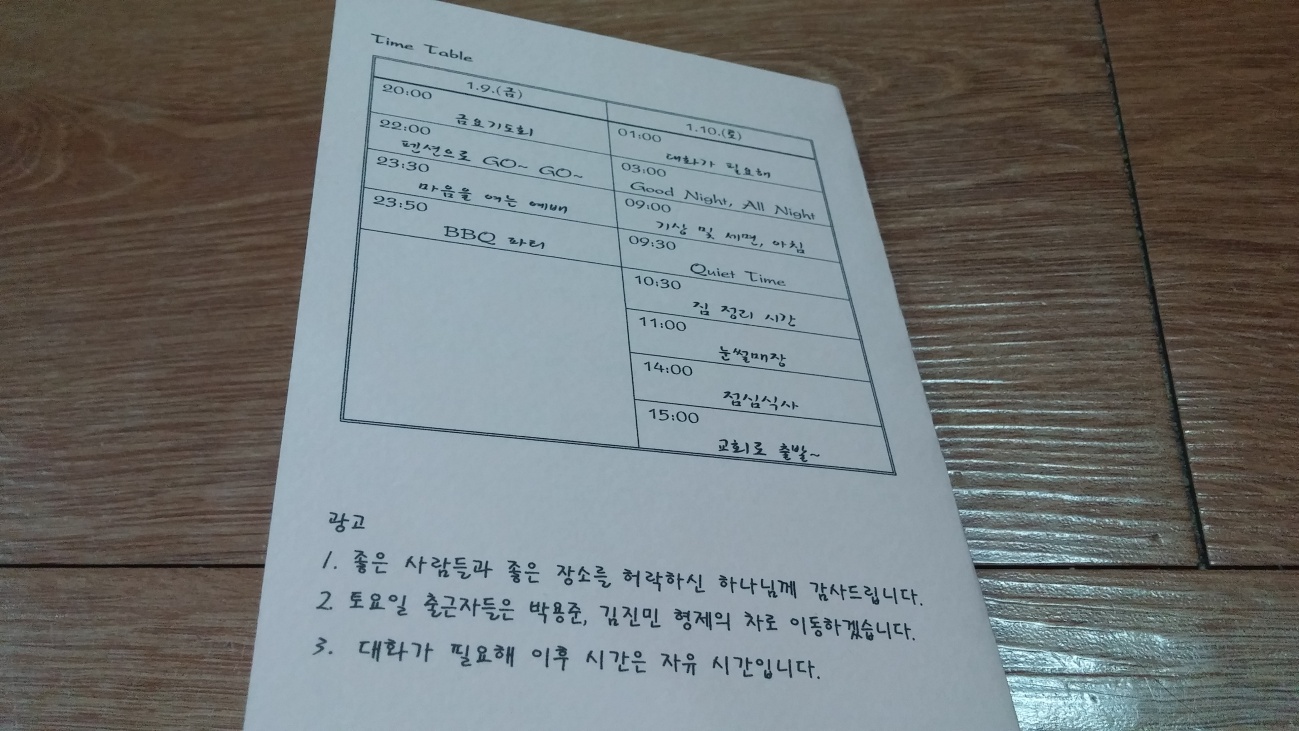 Time Table
1.9.(금)
20:00
금요기도회
22:00
펜션으로 GO~ GO~
23:30
마음을 여는 예배
23:50
BBQ 파리
1.10.(토)
01:00
대화가 필요해
03:00
Good Night, All Night
09:00
기상 및 세면, 아침
09:30
Quiet Time
10:30
짐 정리 시간
11:00
눈썰매장
14:00
점심식사
15:00
교회로 출발~
광고
1. 좋은 사람들과 좋은 장소를 허락하신 하나님께 감사드립니다.
2. 토요일 출근자들은 박용준, 김진민 형제의 차로 이동하겠습니다.
3. 대화가 필요해 이후 시간은 자유 시간입니다.